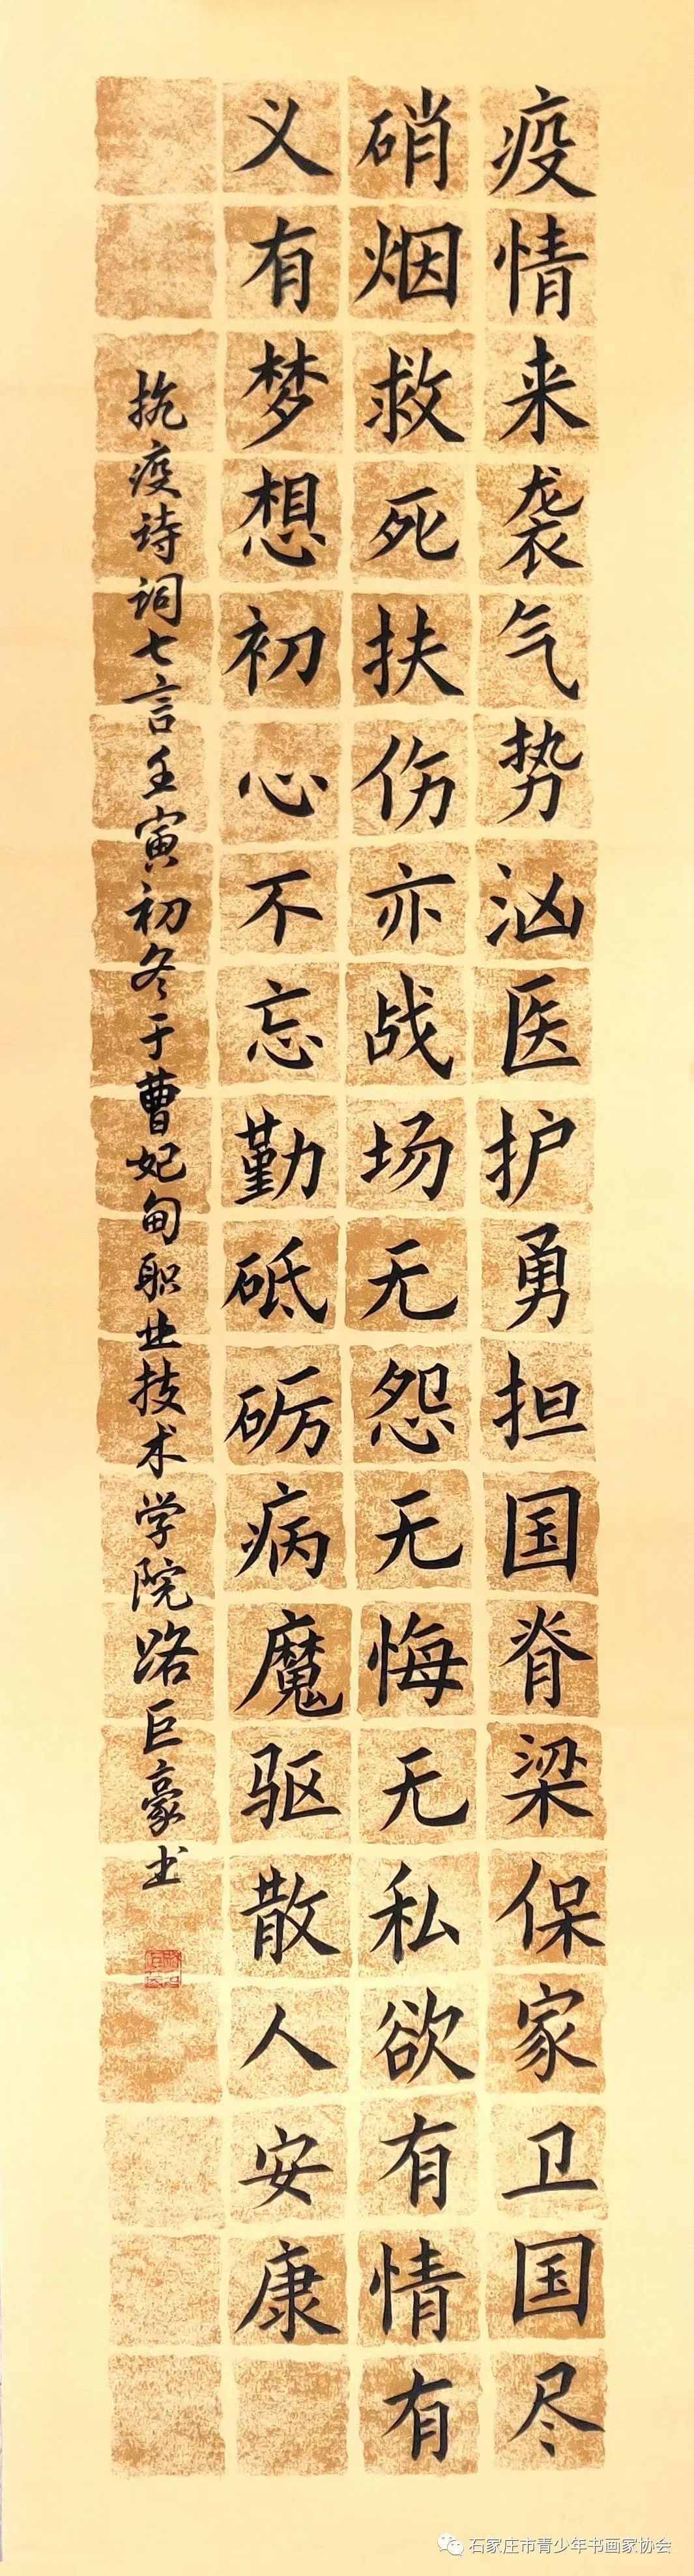 疫情来袭气势汹医护勇担国脊梁保家卫国尽
硝烟救死扶伤亦战场无怨无悔无私欲有情有
义有梦想初心不忘勤砥砺病魔驱散人安康
抗疫诗词七言壬寅初冬于曹妃甸职业技术学院路巨豪书
石家庄市青少年书画家协会